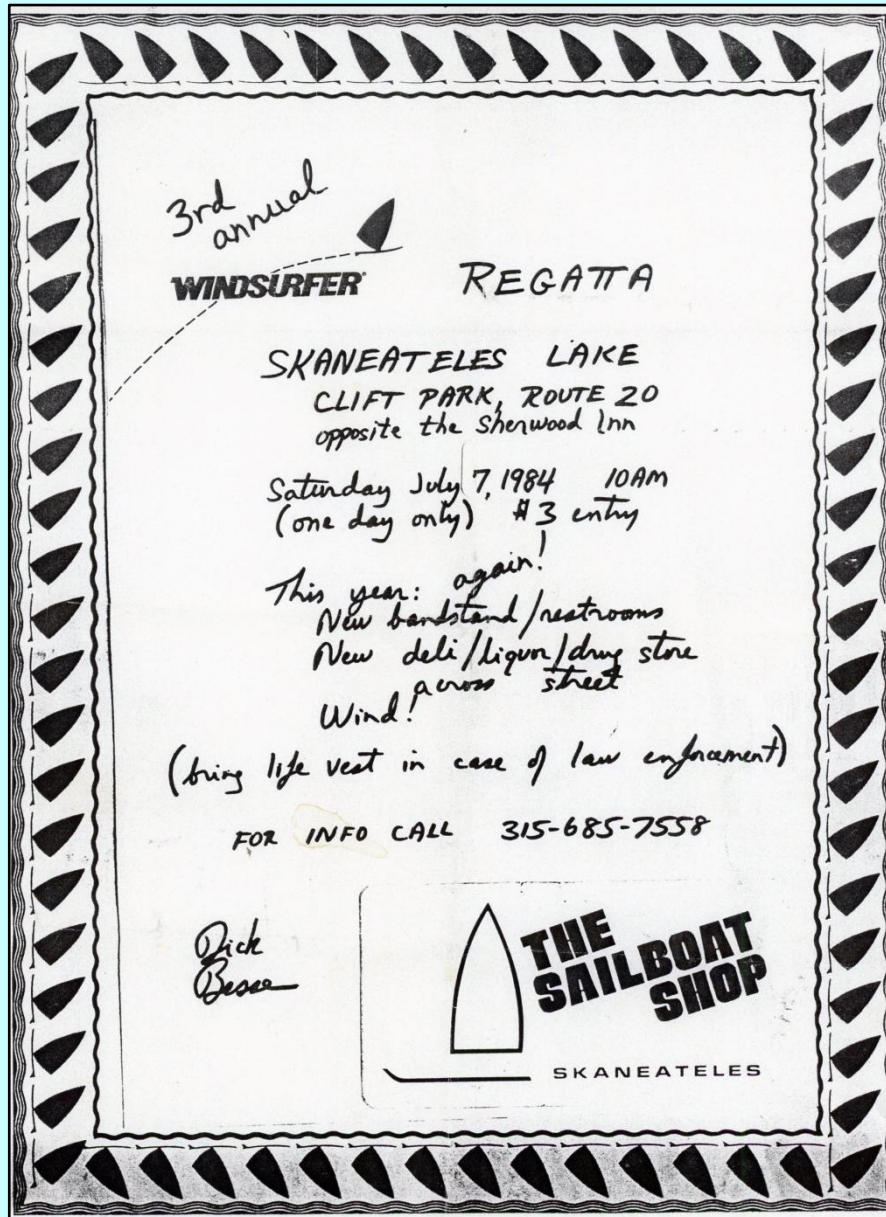 3rd
annual
WINDSURFER REGATTA
SKANEATELES LAKE
CLIFT PARK, ROUTE 20
opposite the Sherwood Inn
Saturday July 7, 1984 10AM
(one day only) $3 entry
This year: again!
New bandstand/restrooms
New deli/liquor/drug store
across street
Wind!
(bring life vest in case of law enforcement)
FOR INFO CALL 315-685-7558
Dick
Besse
THE
SAILBOAT
SHOP
SKANEATELES